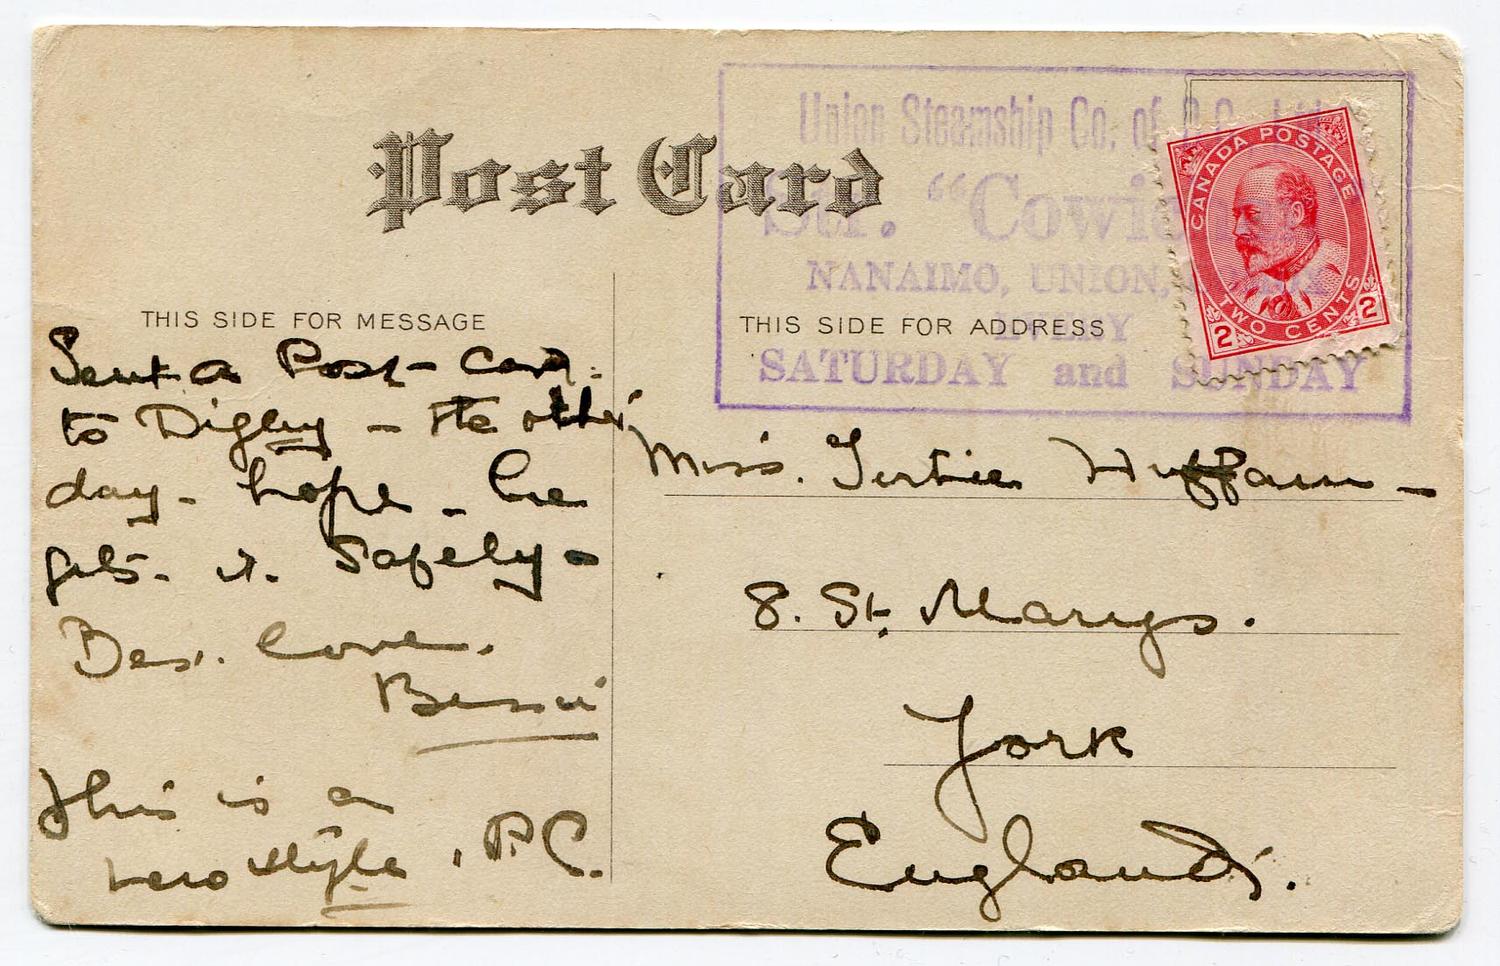 Post Card
Union Steamship Co. of B.C. Ltd.
Str. "Cowic
NANAIMO, UNION,
EVERY
SATURDAY and SUNDAY
CANADA POSTAGE
TWO CENTS
2 2
THIS SIDE FOR MESSAGE
THIS SIDE FOR ADDRESS
Sent a Post-Card.
to Digby - the other
day - hope - he
gets. it. Safely -
Best. Love.
Bessie
This is a
new style. P.C.
Miss. Tertie Huffam -
8. St. Marys.
York
England.